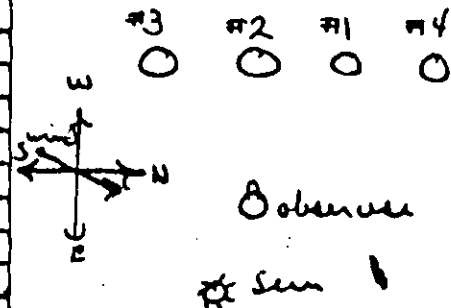 #3 #2 #1 #4
W
wind
S N
E
observer
Sun